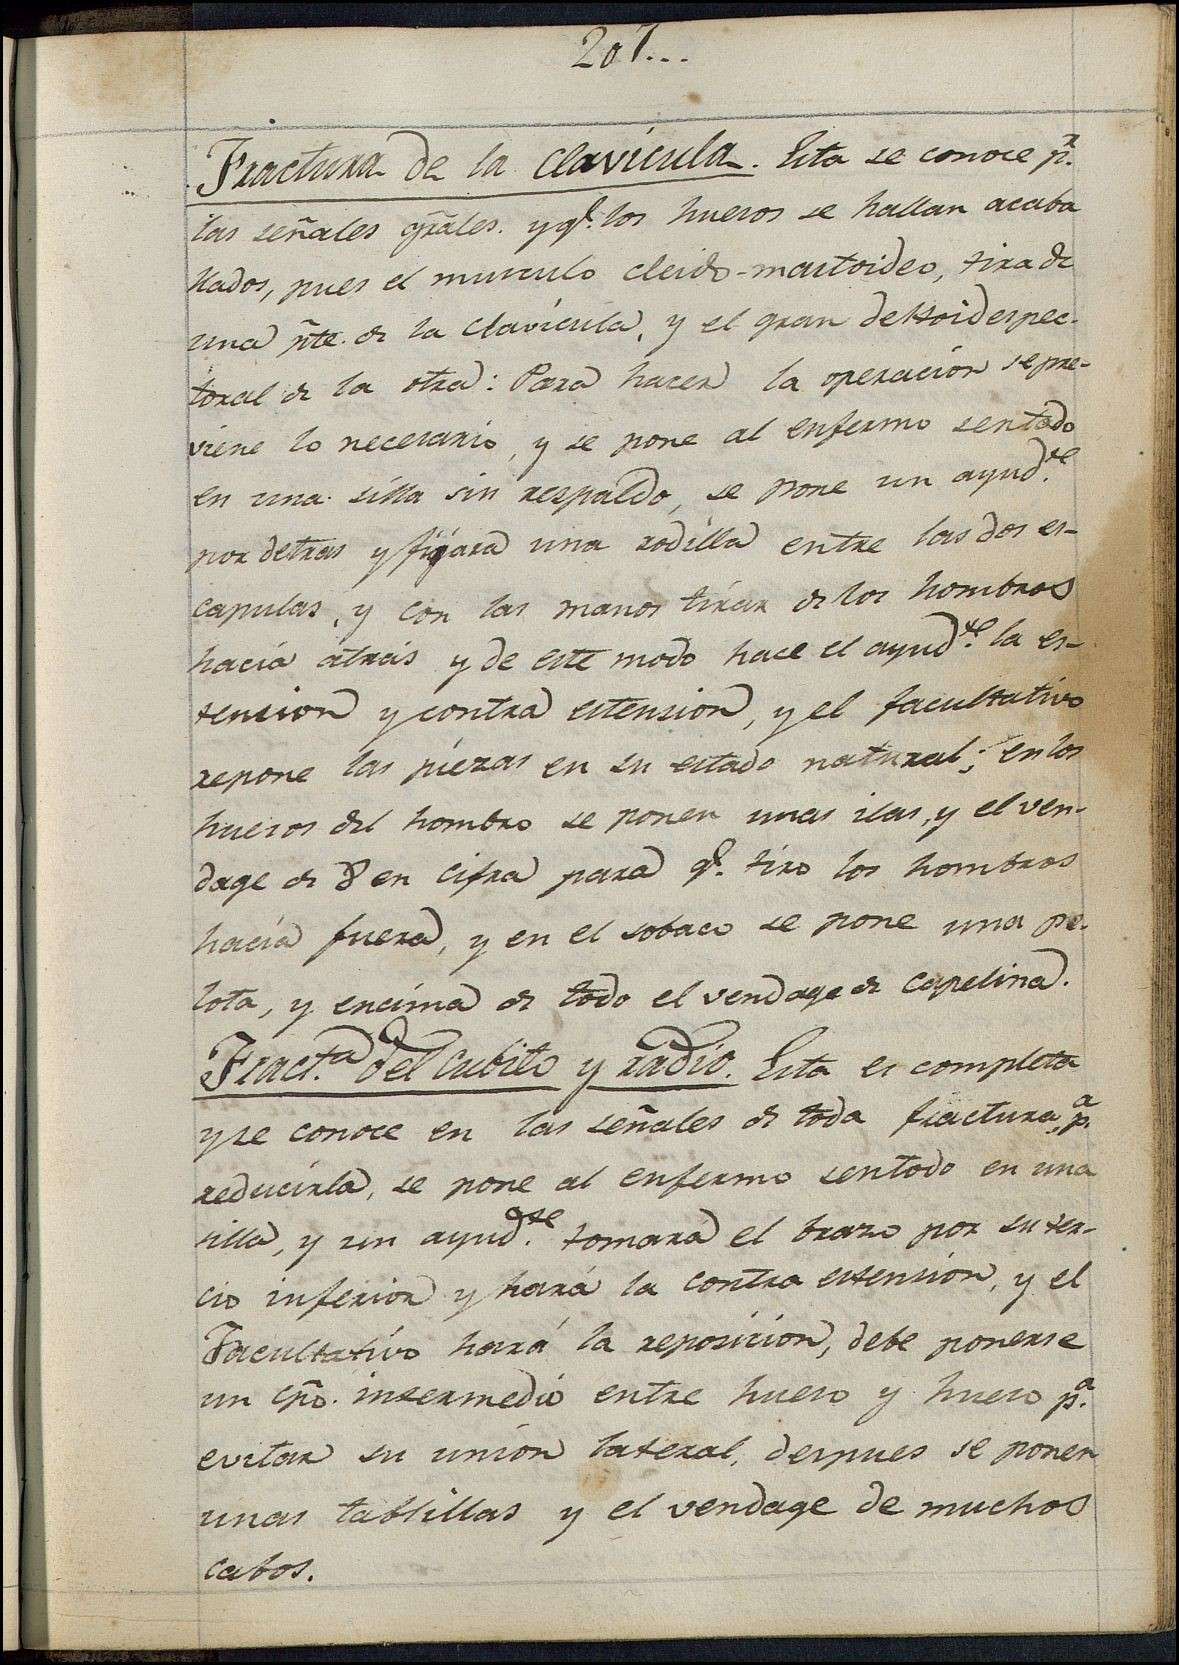 207...
Fractura de la clavicula. Esta se conoce p.r
las señales grãles. y q.e los huesos se hallan acaba
llados, pues el musculo cleido-mastoideo, tira de
una pte. de la clavicula, y el gran deltoides pec-
toral de la otra: Para hacer la operacion se pre-
viene lo necesario, y se pone al enfermo sentado
en una silla sin respaldo, se pone un ayud.te
por detras y fijara una rodilla entre las dos es-
capulas, y con las manos tirar de los hombros
hacia atrás y de este modo hace el ayud.te la es-
tension y contra estension, y el facultativo
repone las piezas en su estado natural; en los
huesos del hombro se ponen unas ilas, y el ven-
dage de 8 en cifra para q.e tire los hombros
hacia fuera, y en el sobaco se pone una pe-
lota, y encima de todo el vendage de capelina.
Fract.a del cubito y radio. Esta es completa
y se conoce en las señales de toda fractura, p.a
reducirla, se pone al enfermo sentado en una
silla, y un ayud.te tomará el brazo por su ter-
cio inferior y hará la contra estension, y el
Facultativo hará la reposicion, debe ponerse
un cpõ. intermedio entre hueso y hueso p.a
evitar su union lateral, despues se ponen
unas tablillas y el vendage de muchos
cabos.